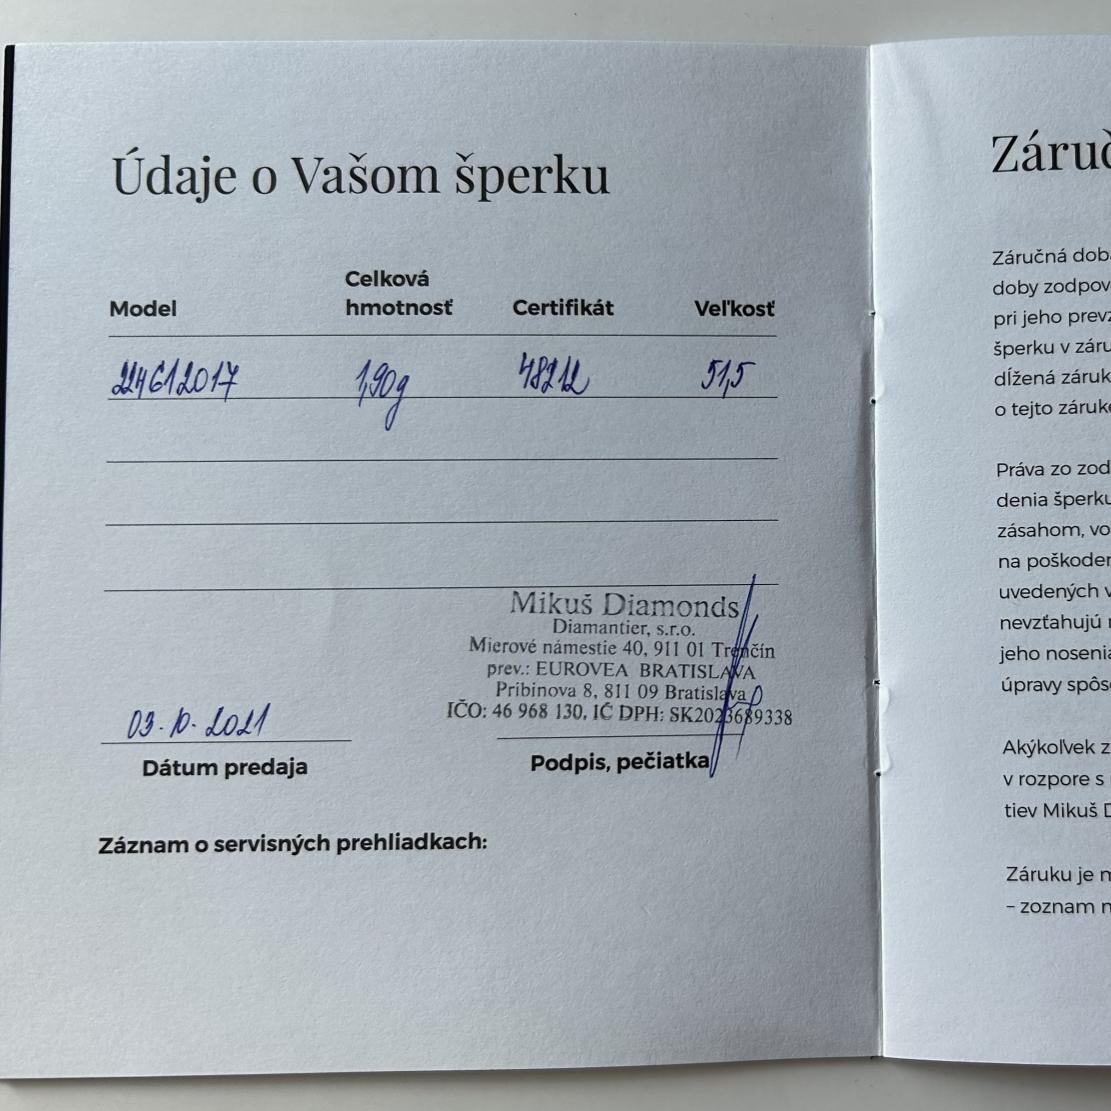 Údaje o Vašom šperku
Model Celková hmotnosť Certifikát Veľkosť
224612017 1,90g 48212 51,5
Mikuš Diamonds
Diamantier, s.r.o.
Mierové námestie 40, 911 01 Trenčín
prev.: EUROVEA BRATISLAVA
Pribinova 8, 811 09 Bratislava
IČO: 46 968 130, IČ DPH: SK2023689338
03.10.2021
Dátum predaja
Podpis, pečiatka
Záznam o servisných prehliadkach:
Záruč
Záručná doba
doby zodpov
pri jeho prevz
šperku v záru
dĺžená záruk
o tejto záruke
Práva zo zod
denia šperku
zásahom, vo
na poškoden
uvedených v
nevzťahujú n
jeho nosenia
úpravy spôso
Akýkoľvek z
v rozpore s
tiev Mikuš D
Záruku je m
– zoznam n